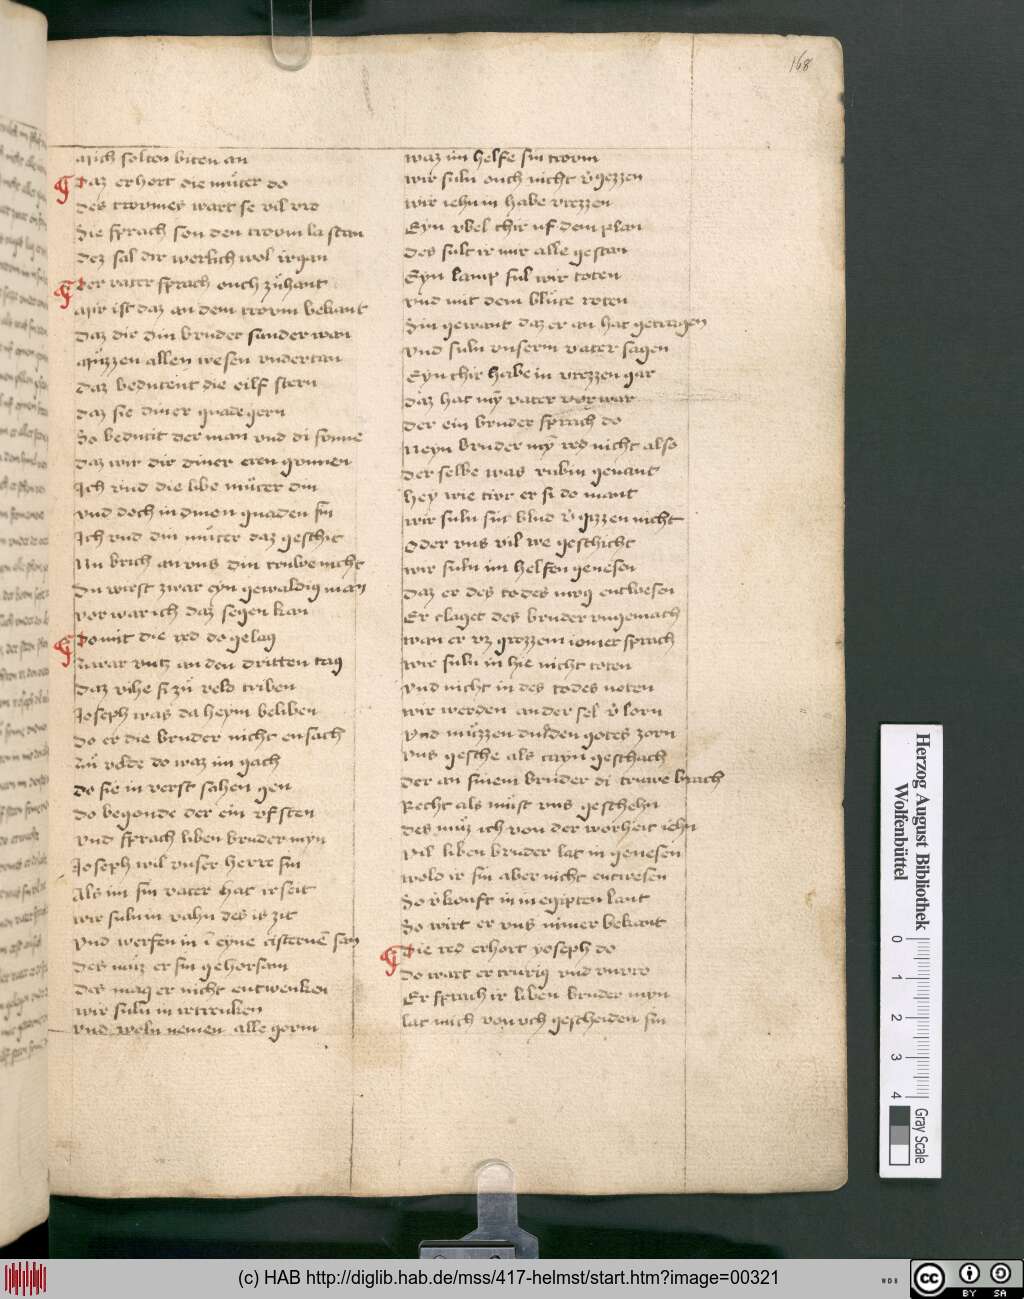 168
Mich solten biten an
Daz erhort die muͤter do
Des trovmes wart se vil vro
Sie sprach son den trovm la stan
Dez sal dir werlich wol irgan
Der vater sprach ouch zuͤhant
Mir ist daz an dem trovm bekant
Daz dir din bruder sunder wan
Muͤzzen allen wesen vndertan
Daz bedutent die eilf stern
Daz sie diner gnade gern
So bedutit der man vnd di sonne
Daz wir dir diner eren gonnen
Ich vnd die libe muͤter din
Vnd doch in dinen gnaden sin
Ich vnd din muͤter daz geschit
Nu brich an vns din truwe nicht
Du wirst zwar eyn gewaldig man
Vor war ich daz segen kan
Domit die red do gelag
Zwar vntz an den dritten tag
Daz vihe si zuͤ veld triben
Joseph was da heym beliben
Do er die bruder nicht ensach
Zuͤ velde do waz im gach
Do sie in verst sahen gen
Do begonde der ein vf sten
Vnd sprach liben bruder myn
Joseph wil vnser herre sin
Als im sin vater hat ir seit
Wir suln in vahn des is zit
Vnd werfen in ī eyne cisternē san
Des muͤz er sin gehorsam
Des mag er nicht entwenken
Wir suln in irtrenken
Vnd woln nemen alle gorm
Waz im helfe sin trovm
Wir suln ouch nicht v̓gezzen
Wir iehn in habe vrezzen
Eyn vbel thir uf dem plan
Des sult ir mir alle gestan
Eyn lamp sul wir toten
Vnd mit dem bluͤte roten
Sin gewant daz er an hat getragen
Vnd suln vnserm vater sagen
Eyn thir habe in vrezzen gar
Daz hat mȳ vater vor war
Der ein bruder sprach do
Neyn bruder mȳ red nicht also
Der selbe was rubin genant
Hey wie tivr er si do mant
Wir suln sin blud v̓gizzen nicht
Oder vns vil we geschicht
Wir suln im helfen genesen
Daz er des todes mog entwesen
Er claget des bruder vngemach
Wan er vz grozzem iomer sprach
Wir suln in hie nicht toten
Vnd nicht in des todes noten
Wir werden an der sel v̓lorn
Vnd muͤzzen dulden gotes zorn
Vns gesche als cayn geschach
Der an sinem bruder di truwe brach
Recht als muͤst vns geschehn
Des muͤz ich von der worheit iehn
Vil liben bruder lat in genesen
Wold ir sin aber nicht entwesen
So v̓kouft in in egipten lant
So wirt er vns nimer bekant
Die red erhort yoseph do
Do wart er trurig vnd vnvro
Er sprach ir liben bruder myn
Lat mich von vch gescheiden sin
Herzog August Bibliothek
Wolfenbüttel
0 1 2 3 4
Gray Scale
(c) HAB http://diglib.hab.de/mss/417-helmst/start.htm?image=00321
WDB
cc BY SA